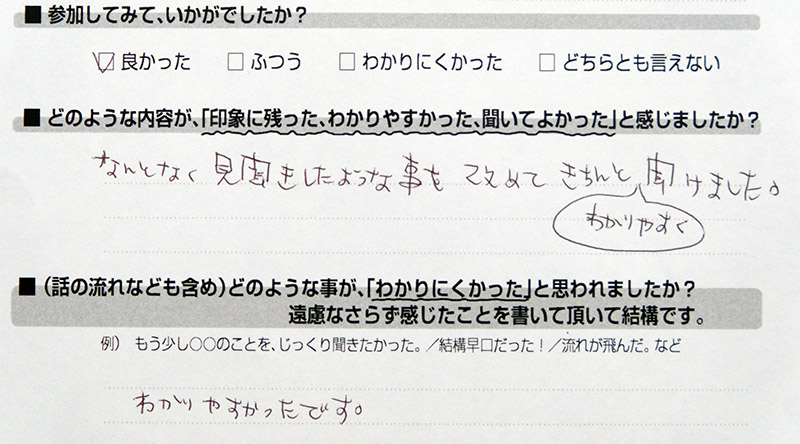 ■ 参加してみて、いかがでしたか？
☑ 良かった □ ふつう □ わかりにくかった □ どちらとも言えない
■ どのような内容が、「印象に残った、わかりやすかった、聞いてよかった」と感じましたか？
なんとなく見聞きしたような事を改めてきちんと聞けました。
わかりやすく
■ （話の流れなども含め）どのような事が、「わかりにくかった」と思われましたか？
遠慮なさらず感じたことを書いて頂いて結構です。
例） もう少し○○のことを、じっくり聞きたかった。／結構早口だった！／流れが飛んだ。など
わかりやすかったです。